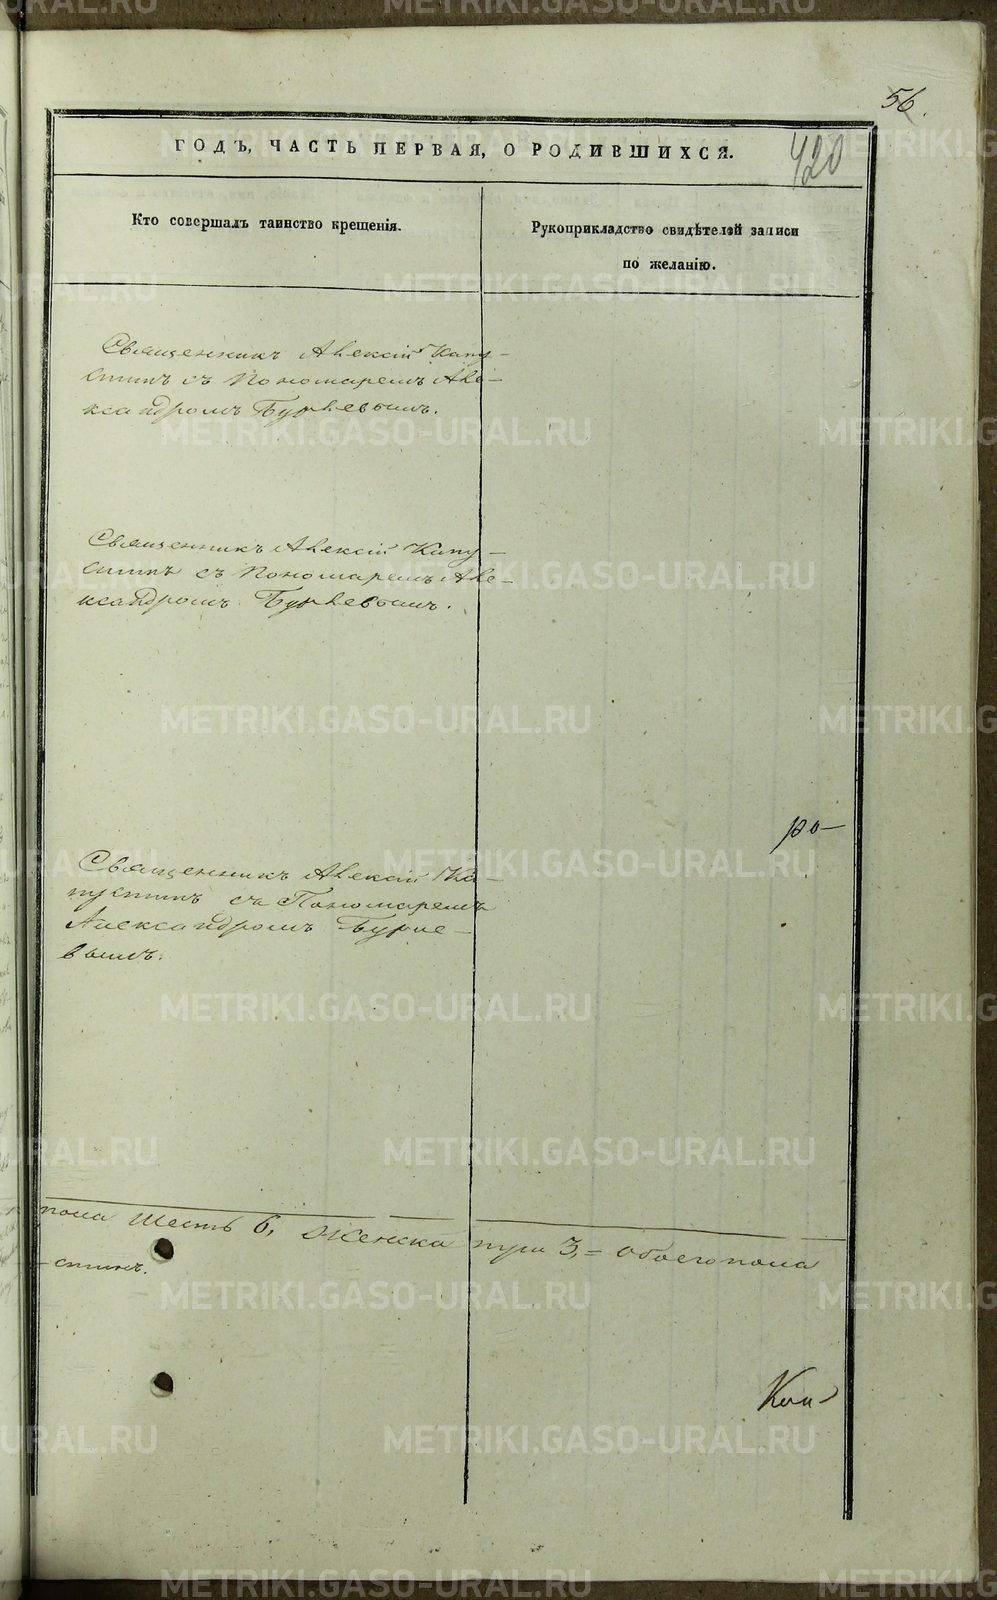 56.
420
ГОДЪ, ЧАСТЬ ПЕРВАЯ, О РОДИВШИХСЯ.
Кто совершалъ таинство крещенія.
Рукоприкладство свидѣтелей записи
по желанію.
Священникъ Алексій Капу-
стинъ съ Пономаремъ Але-
ксандромъ Бурлевымъ.
Священникъ Алексій Капу-
стинъ съ Пономаремъ Але-
ксандромъ Бурлевымъ.
ро-
Священникъ Алексій Ка-
пустинъ съ Пономаремъ
Александромъ Бурле-
вымъ.
пола шесть 6, женска три 3, = обоего пола
-стинъ.
METRIKI.GASO-URAL.RU